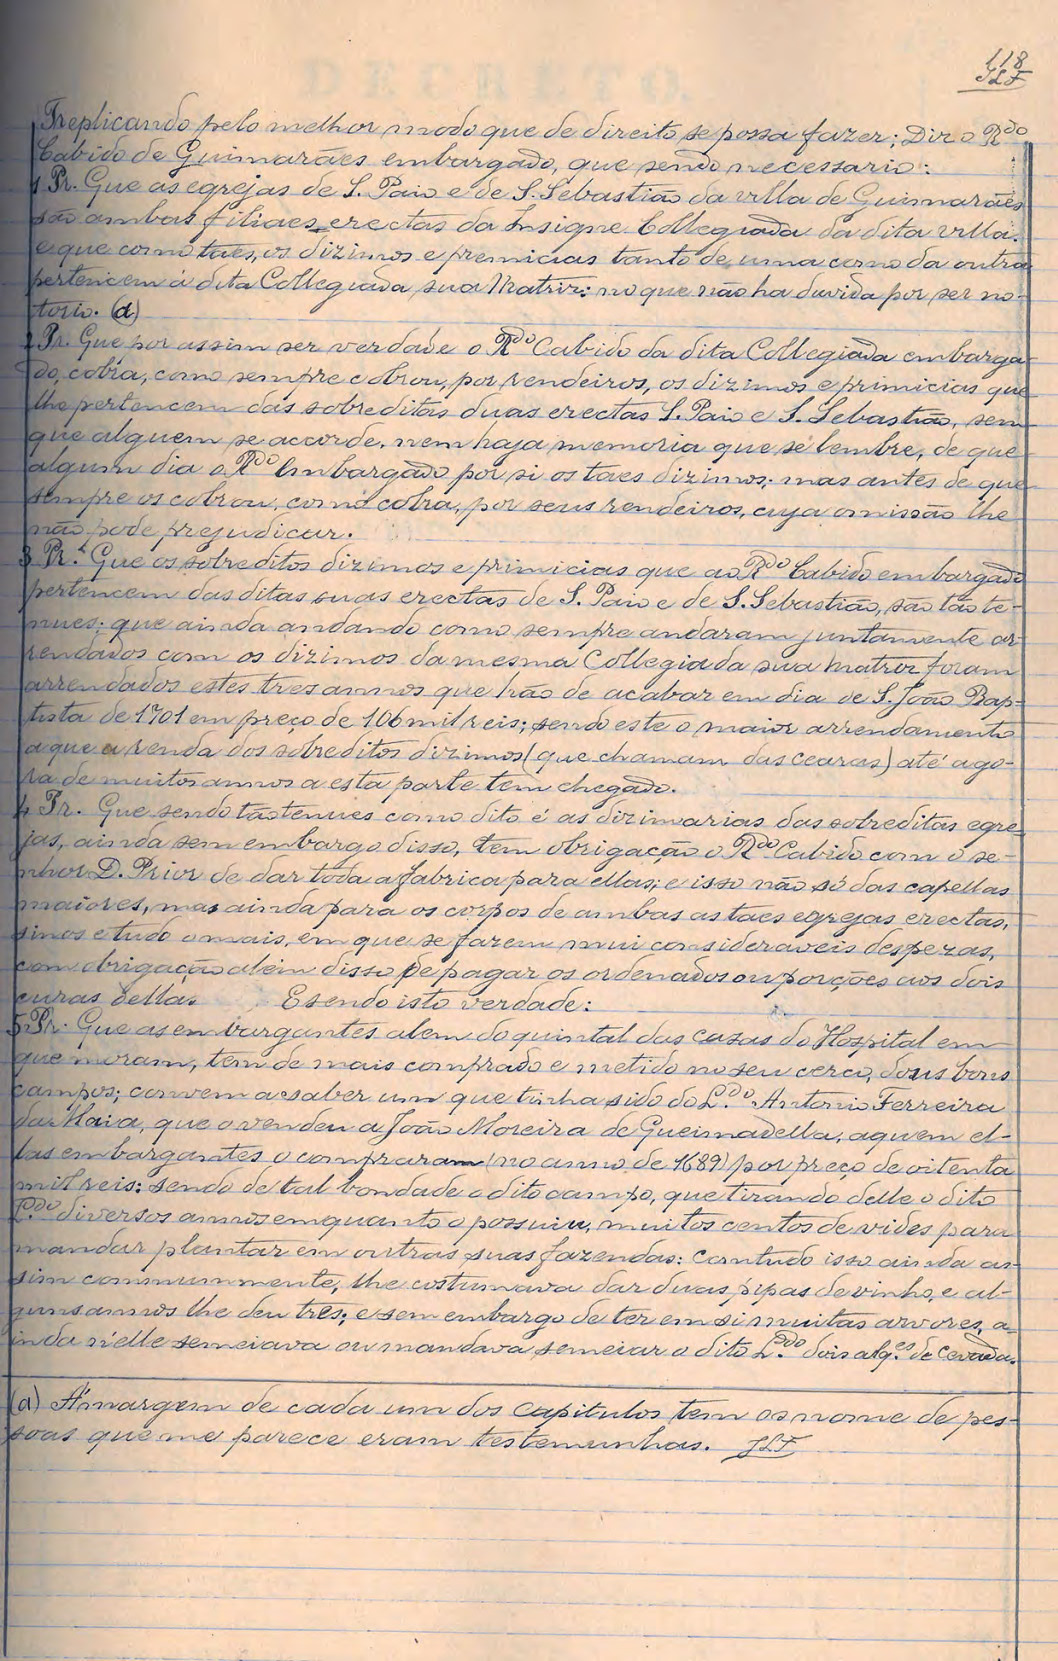 118
JLF
Treplicando pelo melhor modo que de direito se possa fazer; Diz o R.do
Cabido de Guimarães embargado, que sendo necessario:
1 Pr. Que as egrejas de S. Paio e de S. Sebastião da villa de Guimarães
são ambas filiaes erectas da Insigne Collegiada da dita villa:
e que como taes, os dizimos e premicias tanto de uma como da outra
pertencem á dita Collegiada sua Matriz: no que não ha duvida por ser no-
torio. (a)
2 Pr. Que por assim ser verdade o R.do Cabido da dita Collegiada embarga-
do, cobra, como sempre cobrou, por rendeiros, os dizimos e primicias que
lhe pertencem das sobreditas duas erectas S. Paio e S. Sebastião, sem
que alguem se accorde, nem haja memoria que se lembre, de que
algum dia o R.do Embargado por si os taes dizimos; mas antes de que
sempre os cobrou, como cobra, por seus rendeiros, cuja omissão lhe
não pode prejudicar.
3 Pr. Que os sobreditos dizimos e primicias que ao R.do Cabido embargado
pertencem das ditas suas erectas de S. Paio e de S. Sebastião, são tão te-
nues; que ainda andando como sempre andaram juntamente ar-
rendados com os dizimos da mesma Collegiada sua matriz foram
arrendados estes tres annos que hão de acabar em dia de S. João Bap-
tista de 1701 em preço de 106 mil reis; sendo este o maior arrendamento
a que a renda dos sobreditos dizimos (que chamam das cearas) até ago-
ra de muitos annos a esta parte tem chegado.
4 Pr. Que sendo tão tenues como dito é as dizimarias das sobreditas egre-
jas, ainda sem embargo disso, tem obrigação o R.do Cabido com o se-
nhor D. Prior de dar toda a fabrica para ellas; e isso não só das capellas
maiores, mas ainda para os corpos de ambas as taes egrejas erectas,
sinos e tudo o mais, em que se fazem mui consideraveis despezas,
com obrigação alem disso de pagar os ordenados ou porções aos dois
curas dellas. E sendo isto verdade:
5 Pr. Que as embargantes alem do quintal das casas do Hospital em
que moram, tem de mais comprado e metido no seu cerco, dous bons
campos; convem a saber um que tinha sido do L.do Antonio Ferreira
da Maia, que o vendeu a João Moreira de Gueimadella, a quem el-
las embargantes o compraram (no anno de 1689) por preço de oitenta
mil reis: sendo de tal bondade o dito campo, que tirando delle o dito
L.do diversos annos emquanto o possuiu, muitos centos de vides para
mandar plantar em outras suas fazendas: comtudo isso ainda as-
sim communmente, lhe costumava dar duas pipas de vinho, e al-
guns annos lhe deu tres; e sem embargo de ter em si muitas arvores, a-
inda n'elle semeiava ou mandava semeiar o dito L.do dois alq.es de cevada.
(a) Á margem de cada um dos capitulos tem os nome de pes-
soas que me parece eram testemunhas. JLF